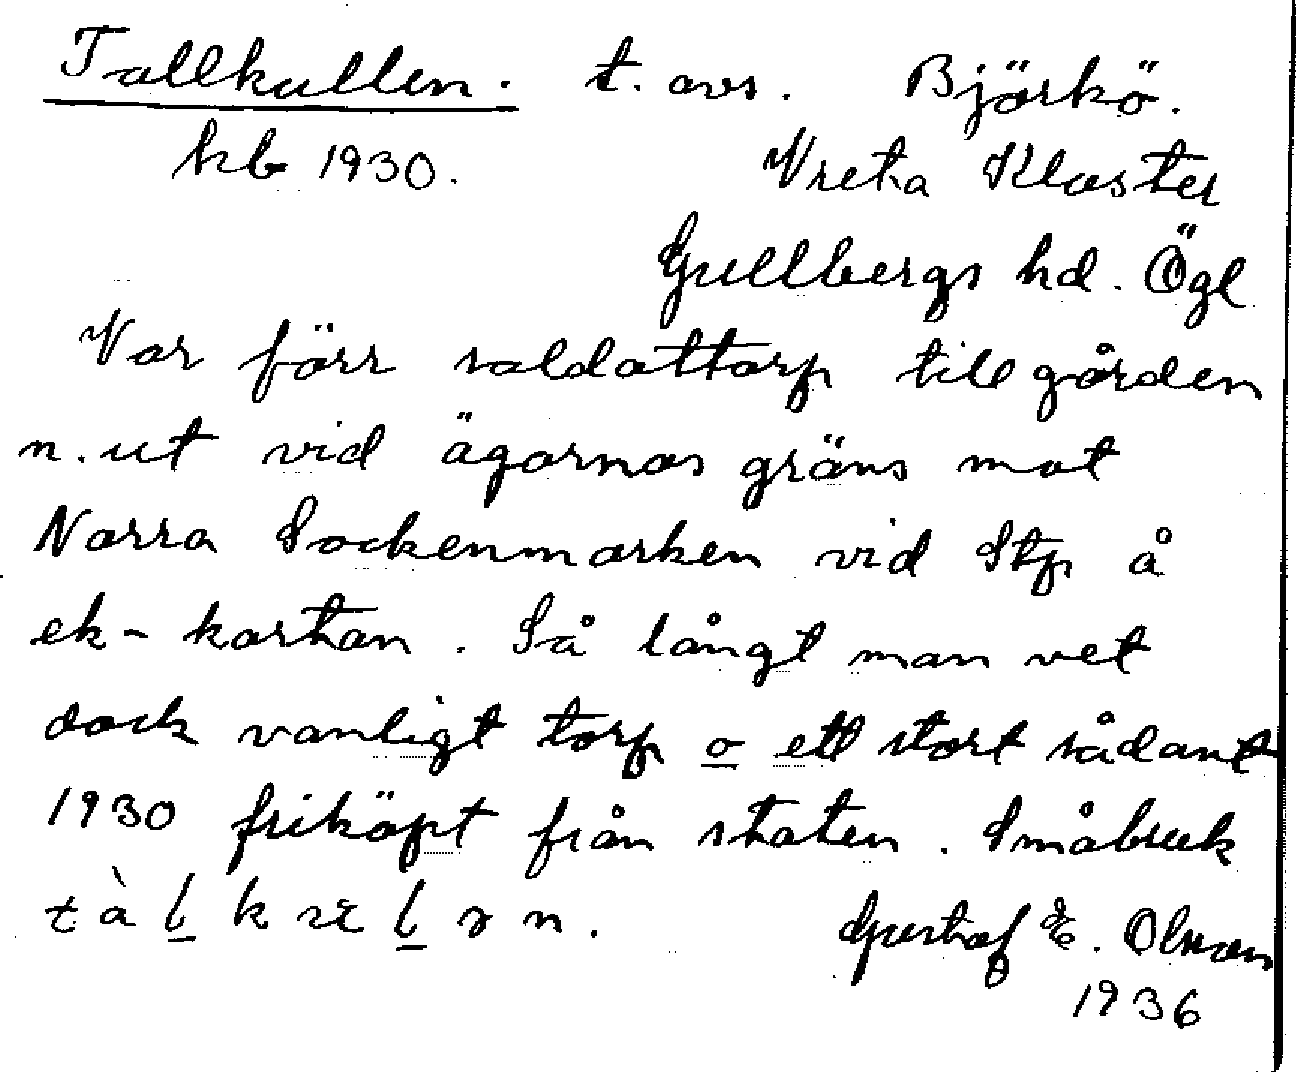 Tallkullen. t. avs. Björkö.
hb 1930. Vreta Kloster
Gullbergs hd. Ögl
Var förr soldattorp till gården
n. ut vid ägornas gräns mot
Norra Sockenmarken vid Stp å
ek-kartan. Så långt man vet
dock vanligt torp o ett stort sådant
1930 friköpt från staten. Småbruk
Gustaf E. Olsson
1936